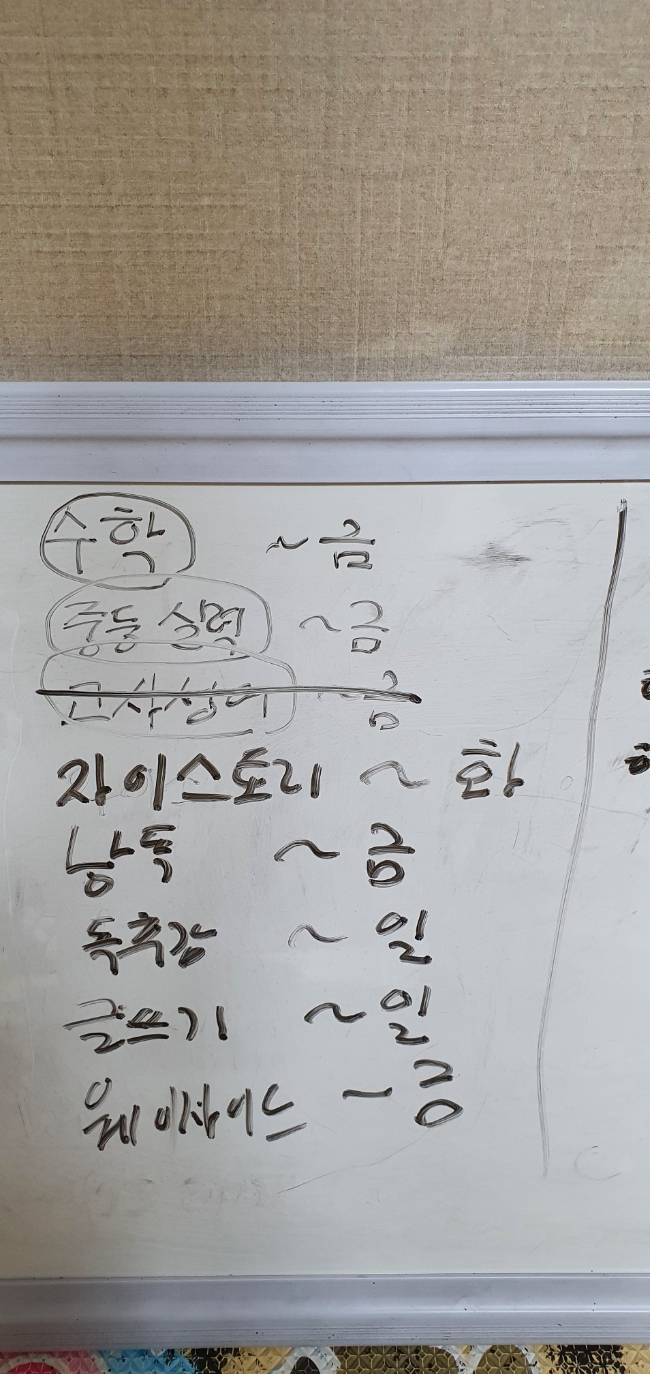 수학 ~금
중등 실력 ~금
고사성어 ~금
자이스토리 ~ 화
낭독 ~ 금
독후감 ~ 일
글쓰기 ~ 일
웨이사이드 ~ 금